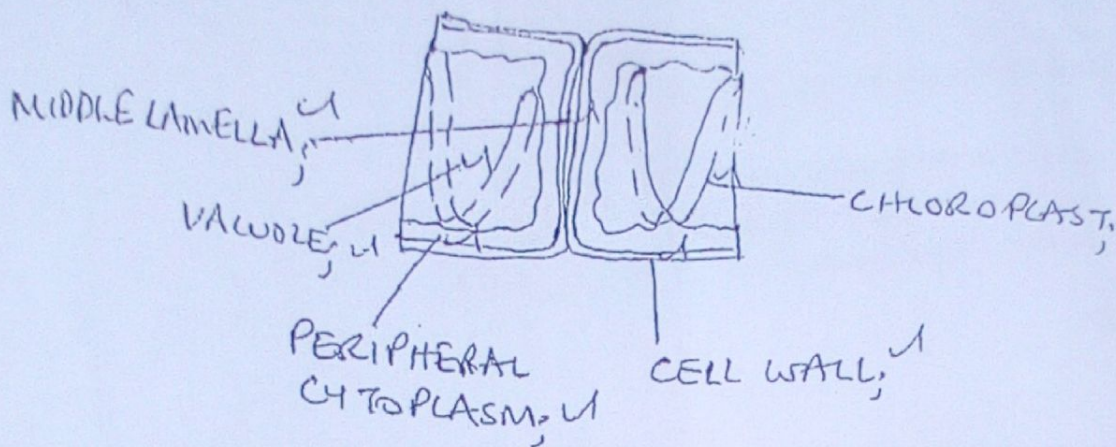 MIDDLE LAMELLA;
VALUOLE;
CHLOROPLAST;
PERIPHERAL
CYTOPLASM;
CELL WALL;